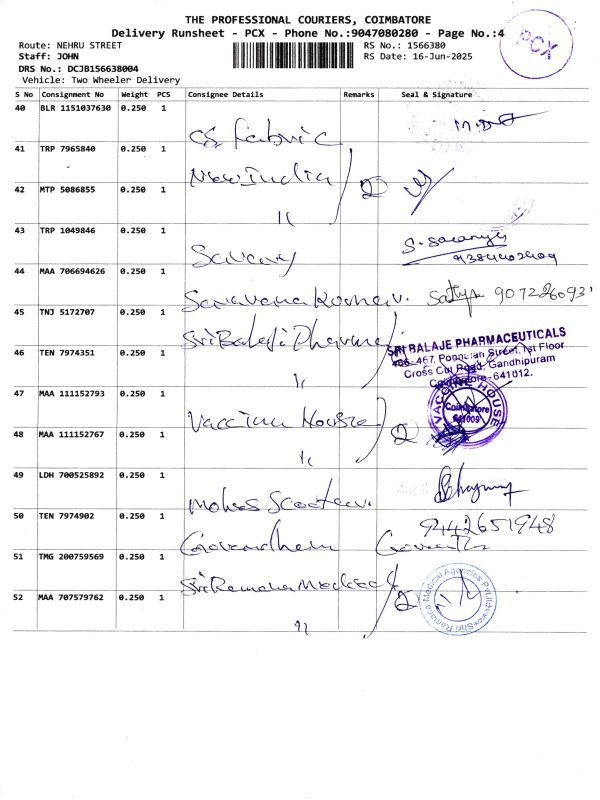 THE PROFESSIONAL COURIERS, COIMBATORE
Delivery Runsheet - PCX - Phone No.:9047080280 - Page No.:4
PCX
Route: NEHRU STREET
RS No.: 1566380
Staff: JOHN
RS Date: 16-Jun-2025
DRS No.: DCJB156638004
Vehicle: Two Wheeler Delivery
S No Consignment No Weight PCS Consignee Details Remarks Seal & Signature
40 BLR 1151037630 0.250 1
CS Fabric
41 TRP 7965840 0.250 1
New India 2
42 MTP 5086855 0.250 1
11
43 TRP 1049846 0.250 1
S. Saranya
44 MAA 706694626 0.250 1
Saravana Kumar. Sathya
45 TNJ 5172707 0.250 1
Sri Balaji Pharma
46 TEN 7974351 0.250 1
11
SRI BALAJE PHARMACEUTICALS
466-467, Ponnaian Street, 1st Floor
Cross Cut Road, Gandhipuram
Coimbatore-641012.
47 MAA 111152793 0.250 1
Vaccine House 2
VACCINE HOUSE
Coimbatore
641009
48 MAA 111152767 0.250 1
11
49 LDH 700525892 0.250 1
Mohan
50 TEN 7974902 0.250 1
9442651948
51 TMG 200759569 0.250 1
Sri Ramana Medical 2
52 MAA 707579762 0.250 1
11
Shri Ramana Medical Agencies Pvt.Ltd